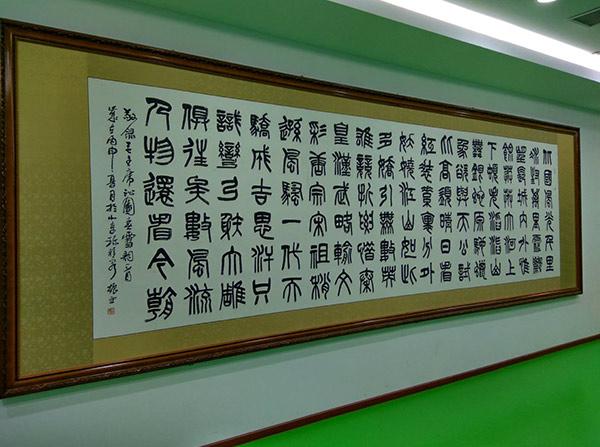 北國風光千里
冰封萬里雪飄
望長城內外惟
餘莽莽大河上
下頓失滔滔山
舞銀蛇原馳蠟
象欲與天公試
比高須晴日看
紅裝素裹分外
妖嬈江山如此
多嬌引無數英
雄競折腰惜秦
皇漢武略輸文
彩唐宗宋祖稍
遜風騷一代天
驕成吉思汗只
識彎弓射大雕
俱往矣數風流
人物還看今朝
敬錄毛主席沁園春雪詞一首
歲在丙申夏月於